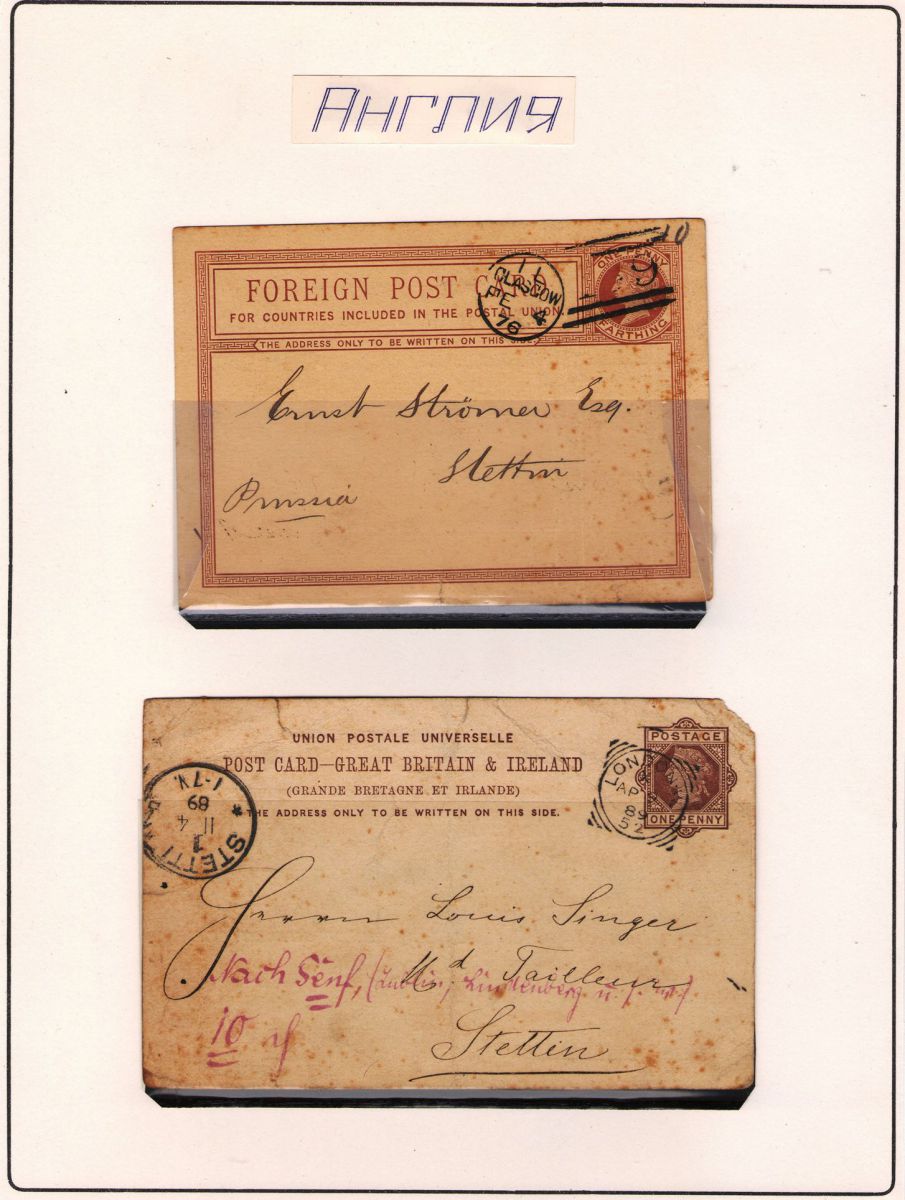 Англия
FOREIGN POST CARD
FOR COUNTRIES INCLUDED IN THE POSTAL UNION.
THE ADDRESS ONLY TO BE WRITTEN ON THIS SIDE.
ONE PENNY
FARTHING
GLASGOW
FE 4
76
10
Ernst Strömer Esq.
Stettin
Prussia
UNION POSTALE UNIVERSELLE
POST CARD—GREAT BRITAIN & IRELAND
(GRANDE BRETAGNE ET IRLANDE)
THE ADDRESS ONLY TO BE WRITTEN ON THIS SIDE.
POSTAGE
ONE PENNY
LONDON
AP
89
52
STETTI
1
11 4
89
1-7N.
Herrn Louis Singer
Md Tailleur
Nach Senf, (Lublin, Lindenberg u.
10
Stettin